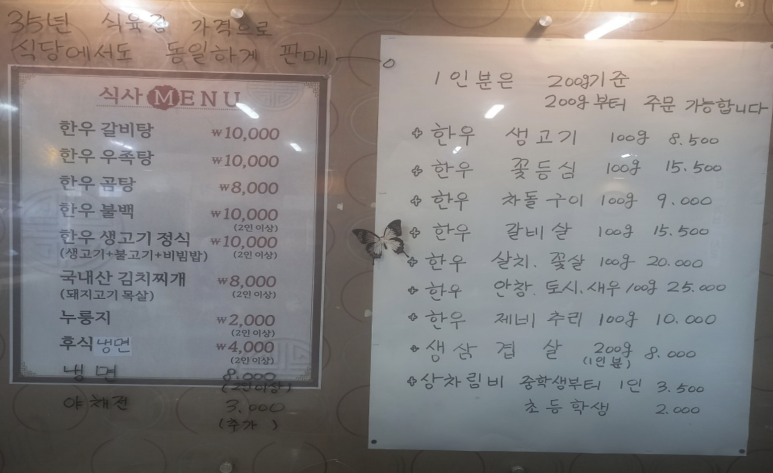 35년 식육점 가격으로
식당에서도 동일하게 판매
식사 MENU
한우 갈비탕 ₩10,000
한우 우족탕 ₩10,000
한우 곰탕 ₩8,000
한우 불백 ₩10,000
(2인 이상)
한우 생고기 정식 ₩10,000
(생고기+불고기+비빔밥) (2인 이상)
국내산 김치찌개 ₩8,000
(돼지고기 목살) (2인 이상)
누룽지 ₩2,000
(2인 이상)
후식 냉면 ₩4,000
(2인 이상)
냉면 8,000
(2인 이상)
야채전 3.000
(추가)
1인분은 200g기준
200g부터 주문 가능합니다
한우 생고기 100g 8.500
한우 꽃등심 100g 15.500
한우 차돌구이 100g 9.000
한우 갈비살 100g 15.500
한우 살치.꽃살 100g 20.000
한우 안창.토시.새우 100g 25.000
한우 제비추리 100g 10.000
생삼겹살 200g 8.000
(1인분)
상차림비 중학생부터 1인 3.500
초등학생 2.000